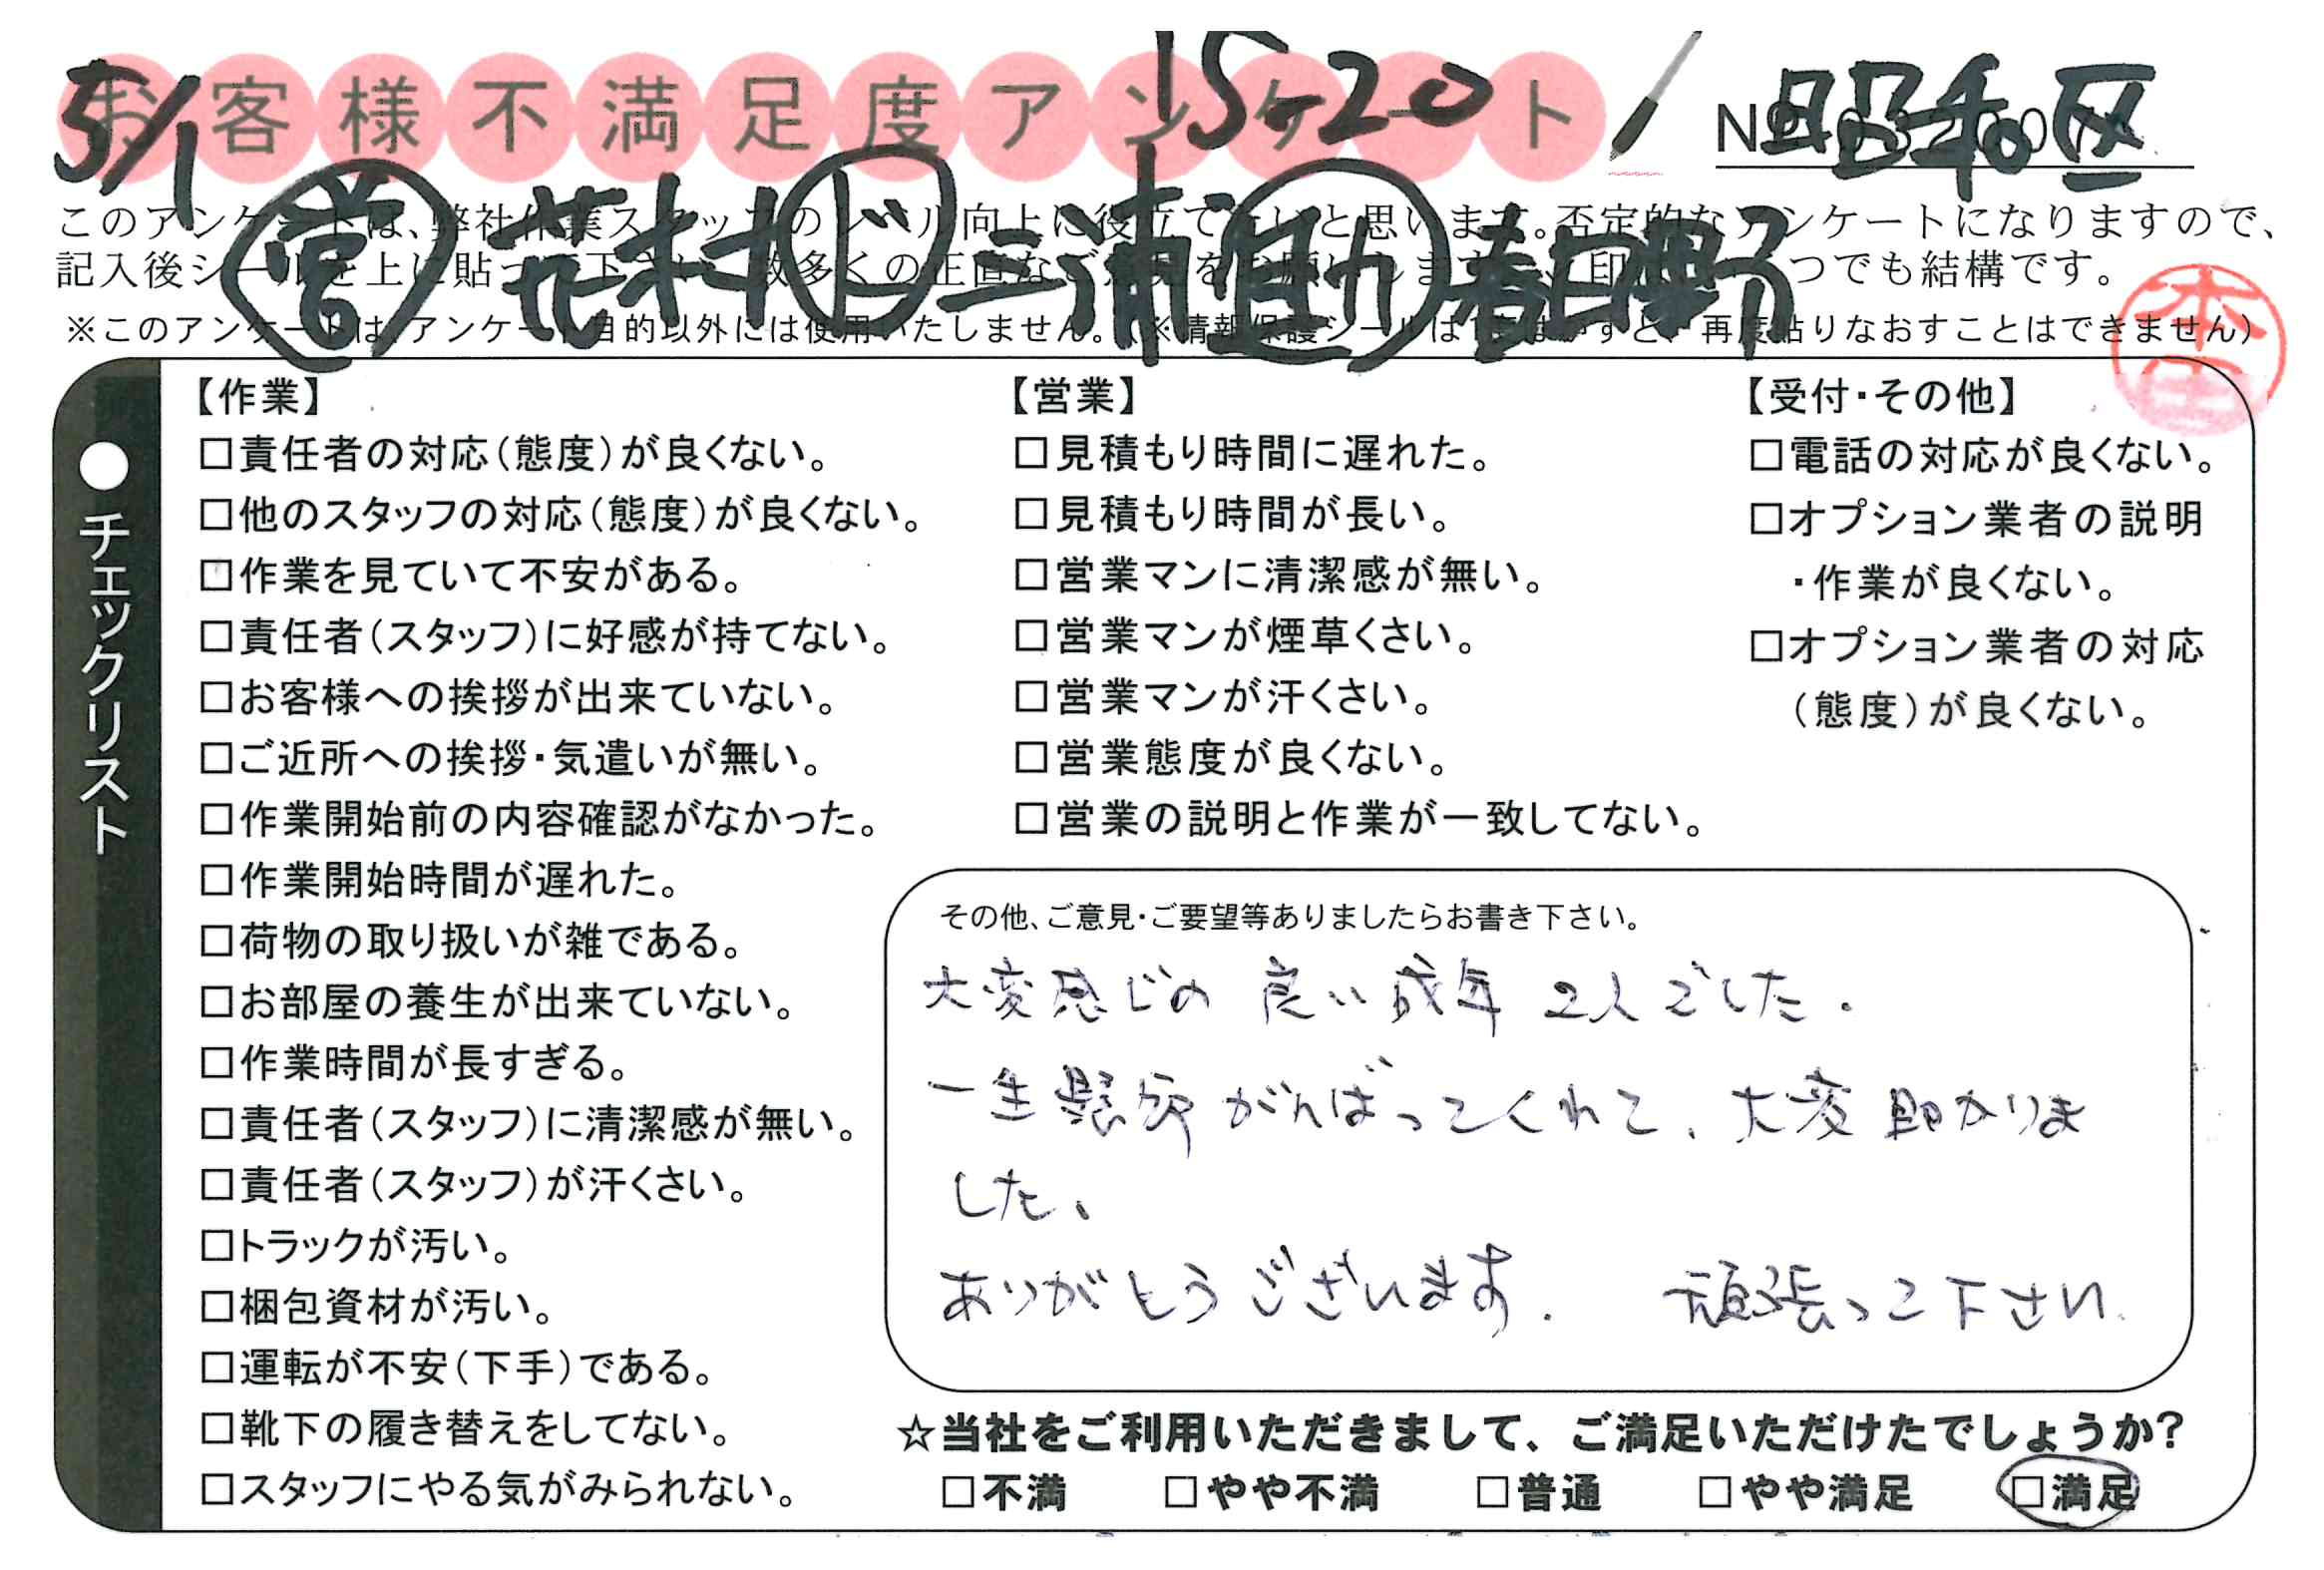 お客様不満足度アンケート
5/1
15-20
昭和区
営 花村 ド 三浦 助 春日野
このアンケートは、弊社作業スタッフのレベル向上に役立てたいと思います。否定的なアンケートになりますので、
記入後シールを上に貼って下さい。数多くの正直なご意見をお願いします。
※このアンケートは、アンケート目的以外には使用いたしません。(※情報保護シールは一度はがすと、再度貼りなおすことはできません)
●チェックリスト
【作業】
□責任者の対応(態度)が良くない。
□他のスタッフの対応(態度)が良くない。
□作業を見ていて不安がある。
□責任者(スタッフ)に好感が持てない。
□お客様への挨拶が出来ていない。
□ご近所への挨拶・気遣いが無い。
□作業開始前の内容確認がなかった。
□作業開始時間が遅れた。
□荷物の取り扱いが雑である。
□お部屋の養生が出来ていない。
□作業時間が長すぎる。
□責任者(スタッフ)に清潔感が無い。
□責任者(スタッフ)が汗くさい。
□トラックが汚い。
□梱包資材が汚い。
□運転が不安(下手)である。
□靴下の履き替えをしてない。
□スタッフにやる気がみられない。
【営業】
□見積もり時間に遅れた。
□見積もり時間が長い。
□営業マンに清潔感が無い。
□営業マンが煙草くさい。
□営業マンが汗くさい。
□営業態度が良くない。
□営業の説明と作業が一致してない。
【受付・その他】
□電話の対応が良くない。
□オプション業者の説明
・作業が良くない。
□オプション業者の対応
(態度)が良くない。
その他、ご意見・ご要望等ありましたらお書き下さい。
大変感じの良い成年2人でした.
一生懸命がんばってくれて、大変助かりま
した、
ありがとうございます. 頑張って下さい
☆当社をご利用いただきまして、ご満足いただけたでしょうか?
□不満 □やや不満 □普通 □やや満足 □満足